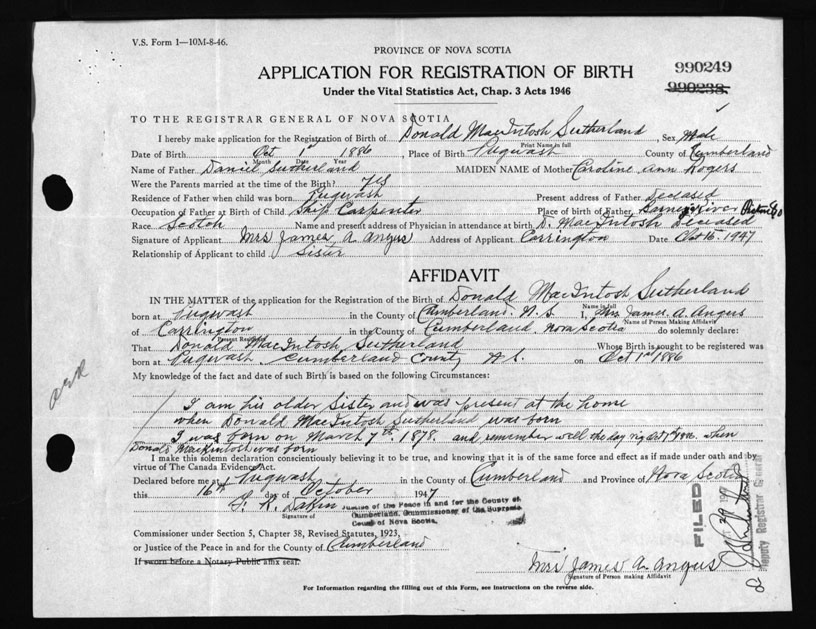 V.S. Form 1—10M-8-46.
PROVINCE OF NOVA SCOTIA
APPLICATION FOR REGISTRATION OF BIRTH
990249
Under the Vital Statistics Act, Chap. 3 Acts 1946
990238
TO THE REGISTRAR GENERAL OF NOVA SCOTIA
I hereby make application for the Registration of Birth of Donald MacIntosh Sutherland Sex Male
Print Name in full
Date of Birth Oct 1st 1886, Place of Birth Pugwash County of Cumberland
Month Date Year
Name of Father Daniel Sutherland MAIDEN NAME of Mother Caroline Ann Rogers
Were the Parents married at the time of the Birth? Yes
Residence of Father when child was born Pugwash Present address of Father Deceased
Occupation of Father at Birth of Child Ship Carpenter Place of birth of Father Barneys River Pictou Co
Race Scotch Name and present address of Physician in attendance at birth D. MacIntosh Deceased
Signature of Applicant Mrs James A. Angus Address of Applicant Carrington Date Oct 16. 1947
Relationship of Applicant to child Sister
AFFIDAVIT
IN THE MATTER of the application for the Registration of the Birth of Donald MacIntosh Sutherland
Name in full
born at Pugwash in the County of Cumberland. N. S. I, Mrs James. A. Angus
Name of Person Making Affidavit
of Carrington in the County of Cumberland, Nova Scotia do solemnly declare:
Present Residence
That Donald MacIntosh Sutherland Whose Birth is sought to be registered was
born at Pugwash, Cumberland County N S. on Oct 1st 1886
My knowledge of the fact and date of such Birth is based on the following Circumstances:
I am his older Sister and was present at the home
when Donald MacIntosh Sutherland was born
I was born on March 7th. 1878. and remember well the day when
Donald MacKintosh was born
I make this solemn declaration conscientiously believing it to be true, and knowing that it is of the same force and effect as if made under oath and by
virtue of The Canada Evidence Act.
Declared before me at Pugwash in the County of Cumberland and Province of Nova Scotia
this 16th day of October 1947
Signature of
Justice of the Peace in and for the County of
Cumberland, Commissioner of the Supreme
Court of Nova Scotia.
Commissioner under Section 5, Chapter 38, Revised Statutes, 1923,
or Justice of the Peace in and for the County of Cumberland
If sworn before a Notary Public affix seal.
Mrs James A. Angus
Signature of Person making Affidavit
For Information regarding the filling out of this Form, see instructions on the reverse side.
FILED
Deputy Registrar General